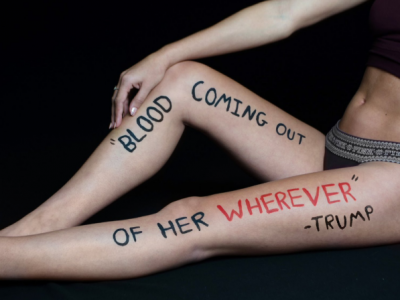 "BLOOD COMING OUT
OF HER WHEREVER"
-TRUMP